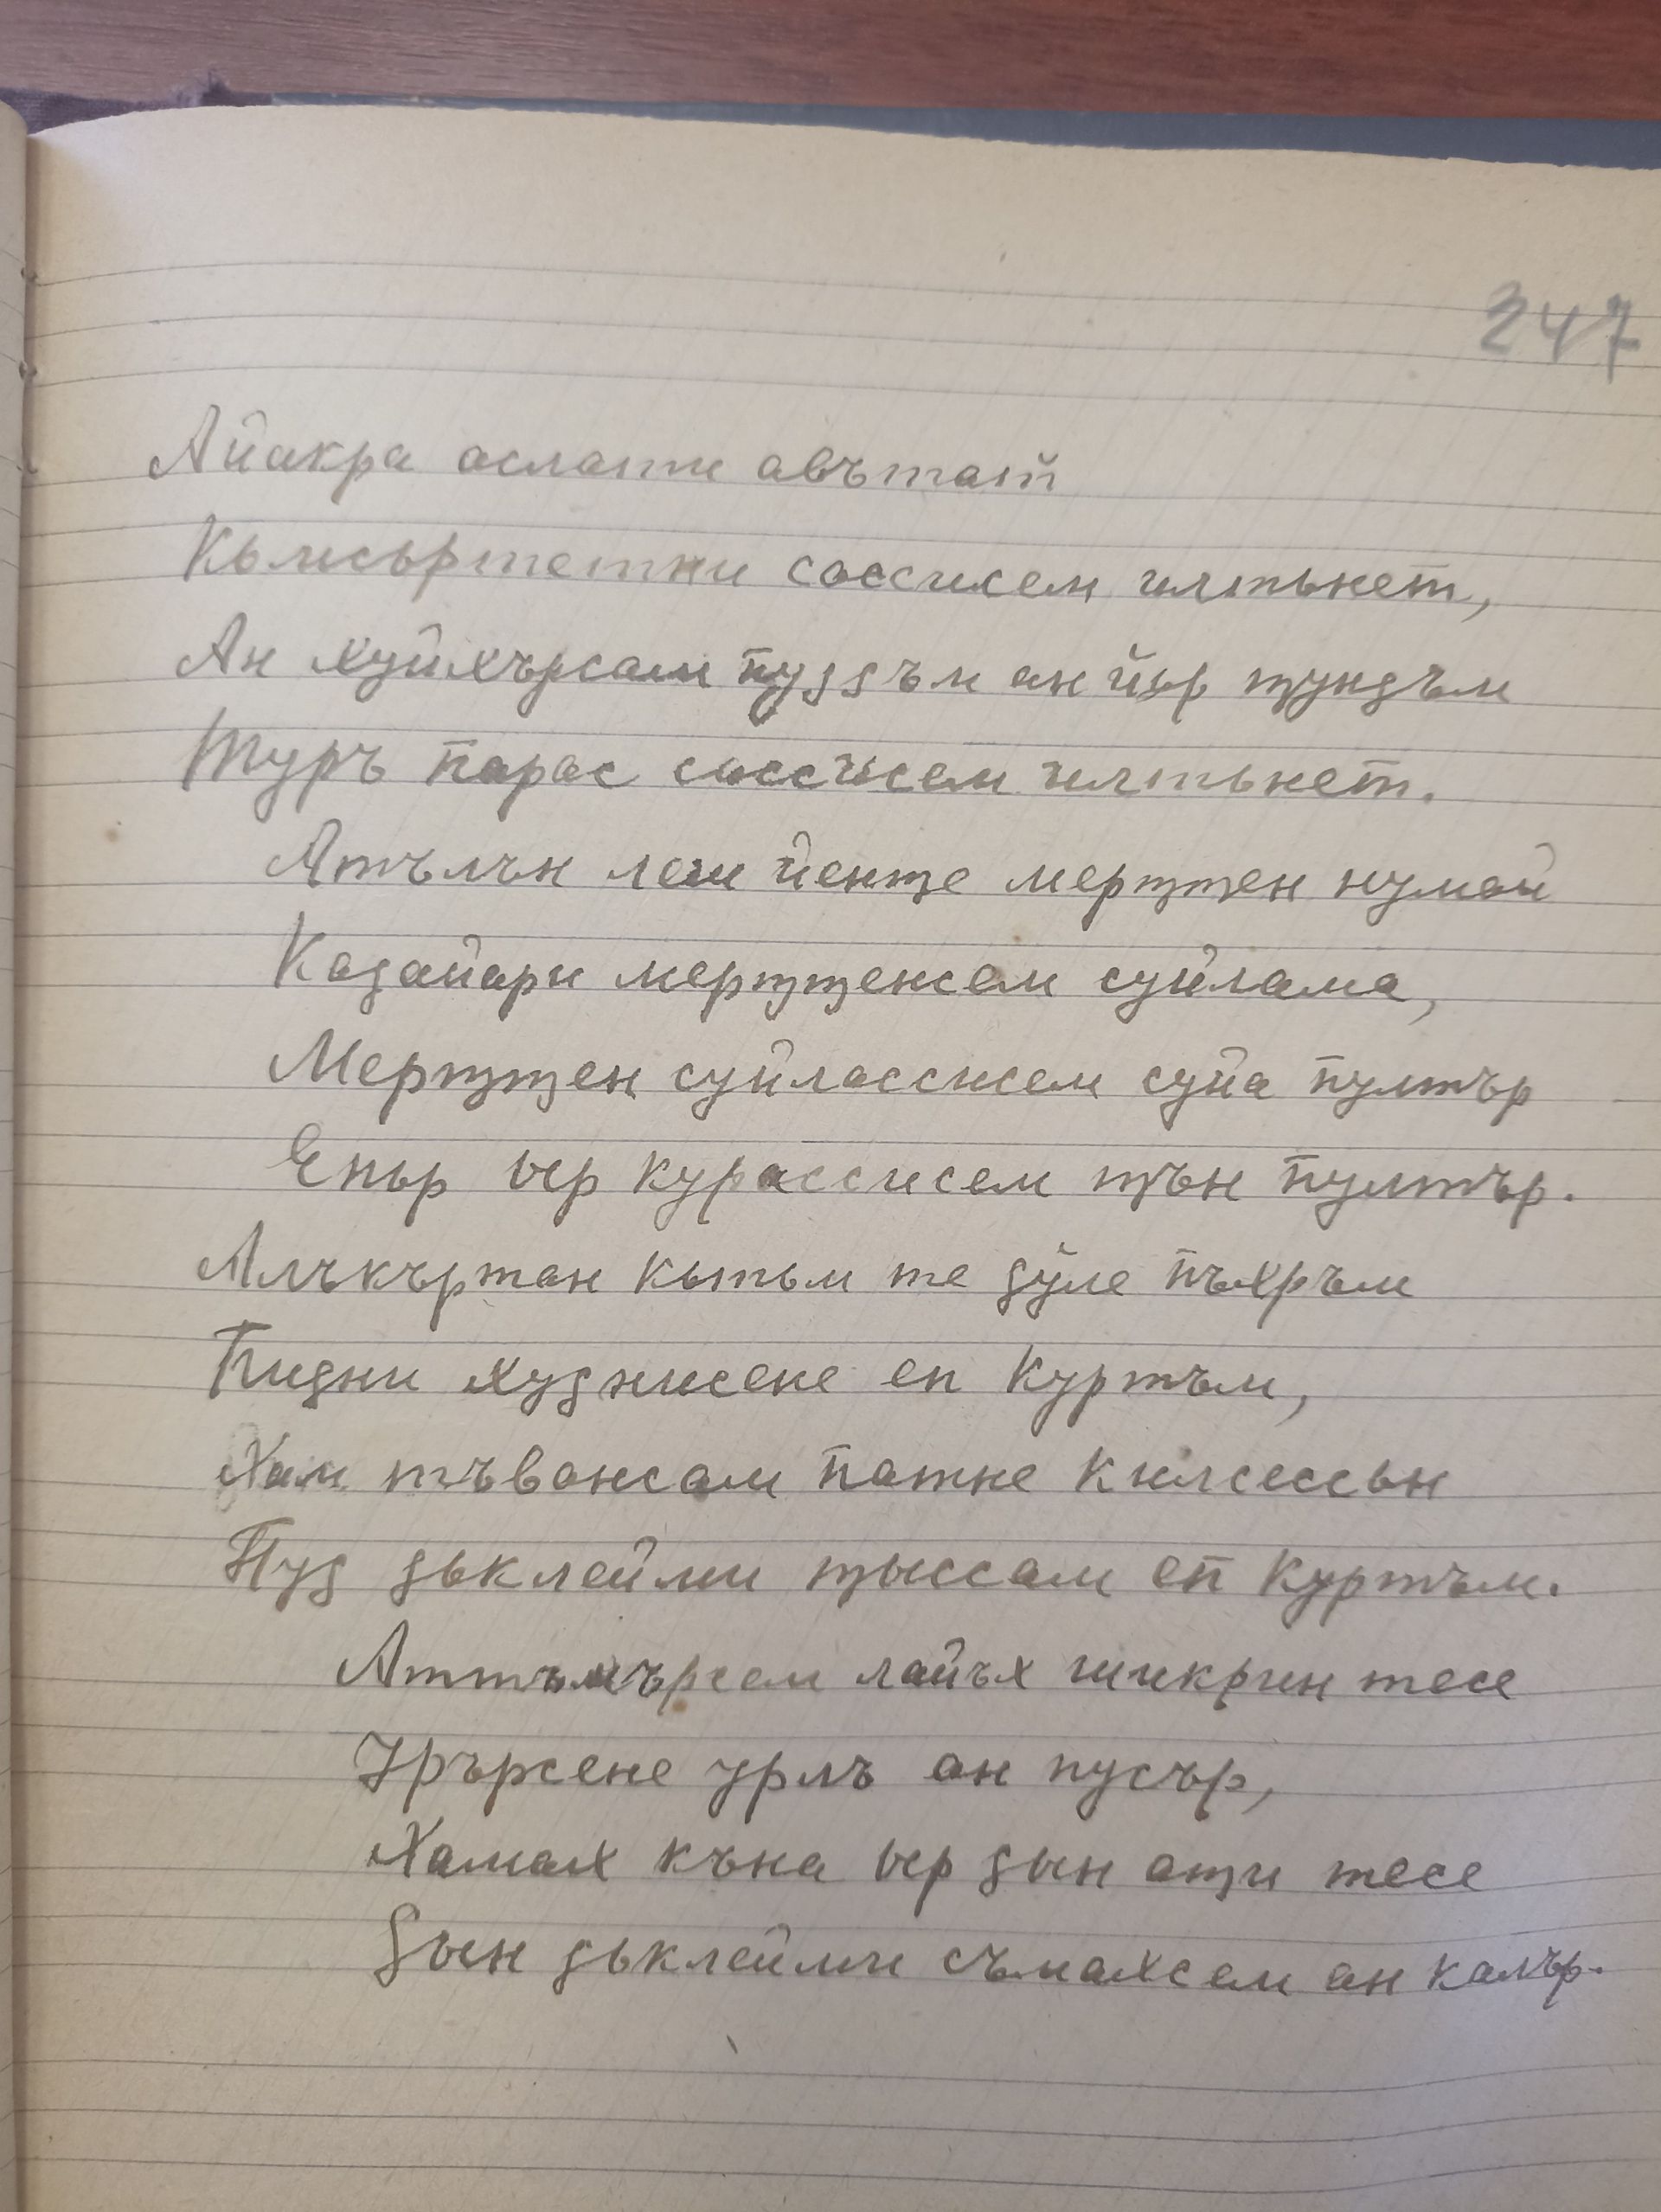 247
Айакра аслати авътат̆
Кьмсьртетни сассисем илтьнет,
Ан хуйхърсам пуҙҙъм ан йьр т̡унҙъм
Туръ парас сассисем илтьнет.
Атълън леш йент̡е мерт̡т̡ен нумай
Каҙайари мерт̡т̡енсем суйлама,
Мерт̡т̡ен суйлассисем суйа пултър
Епьр ыр курассисем т̡ън пултър.
Алъкъртан кьтьм те ҙӳле пъхръм
Пиҙни хуҙнисене еп куртъм,
Хам тъвансам патне килсессьн
Пуҙ ҙьклейми т̡ыссам еп куртъм.
Аттьмърсем лайъх шикрин тесе
Урърсене урлъ ан пусър,
Хамах къна ыр ҙын ат̡и тесе
Ҙын ҙьклейми съмахсем ан калър.